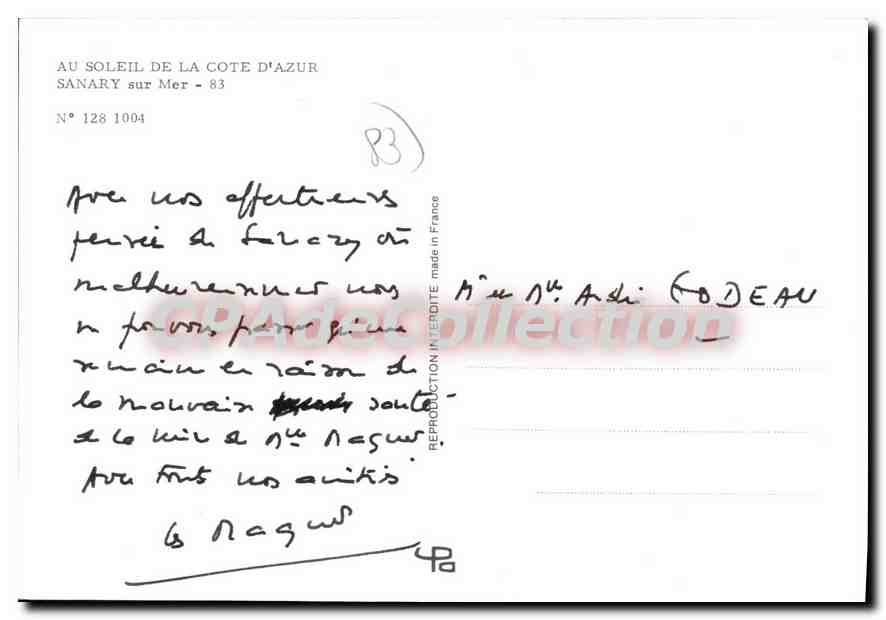 AU SOLEIL DE LA COTE D'AZUR
SANARY sur Mer - 83
N° 128 1004
83
Avec nos affectueuses
pensées de Sanary où
malheureusement nous
ne pouvons passer qu'une
semaine en raison de
la mauvaise santé
de la mère de Mme Maguer.
Avec toutes nos amitiés
les Maguer
REPRODUCTION INTERDITE made in France
Mr et Mme André
CPAdeCollection